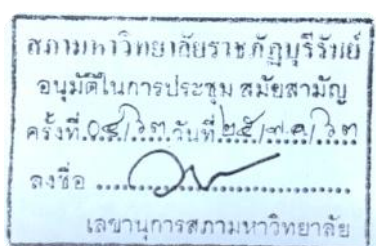 สภามหาวิทยาลัยราชภัฏบุรีรัมย์
อนุมัติในการประชุม สมัยสามัญ
ครั้งที่ วันที่
ลงชื่อ
เลขานุการสภามหาวิทยาลัย